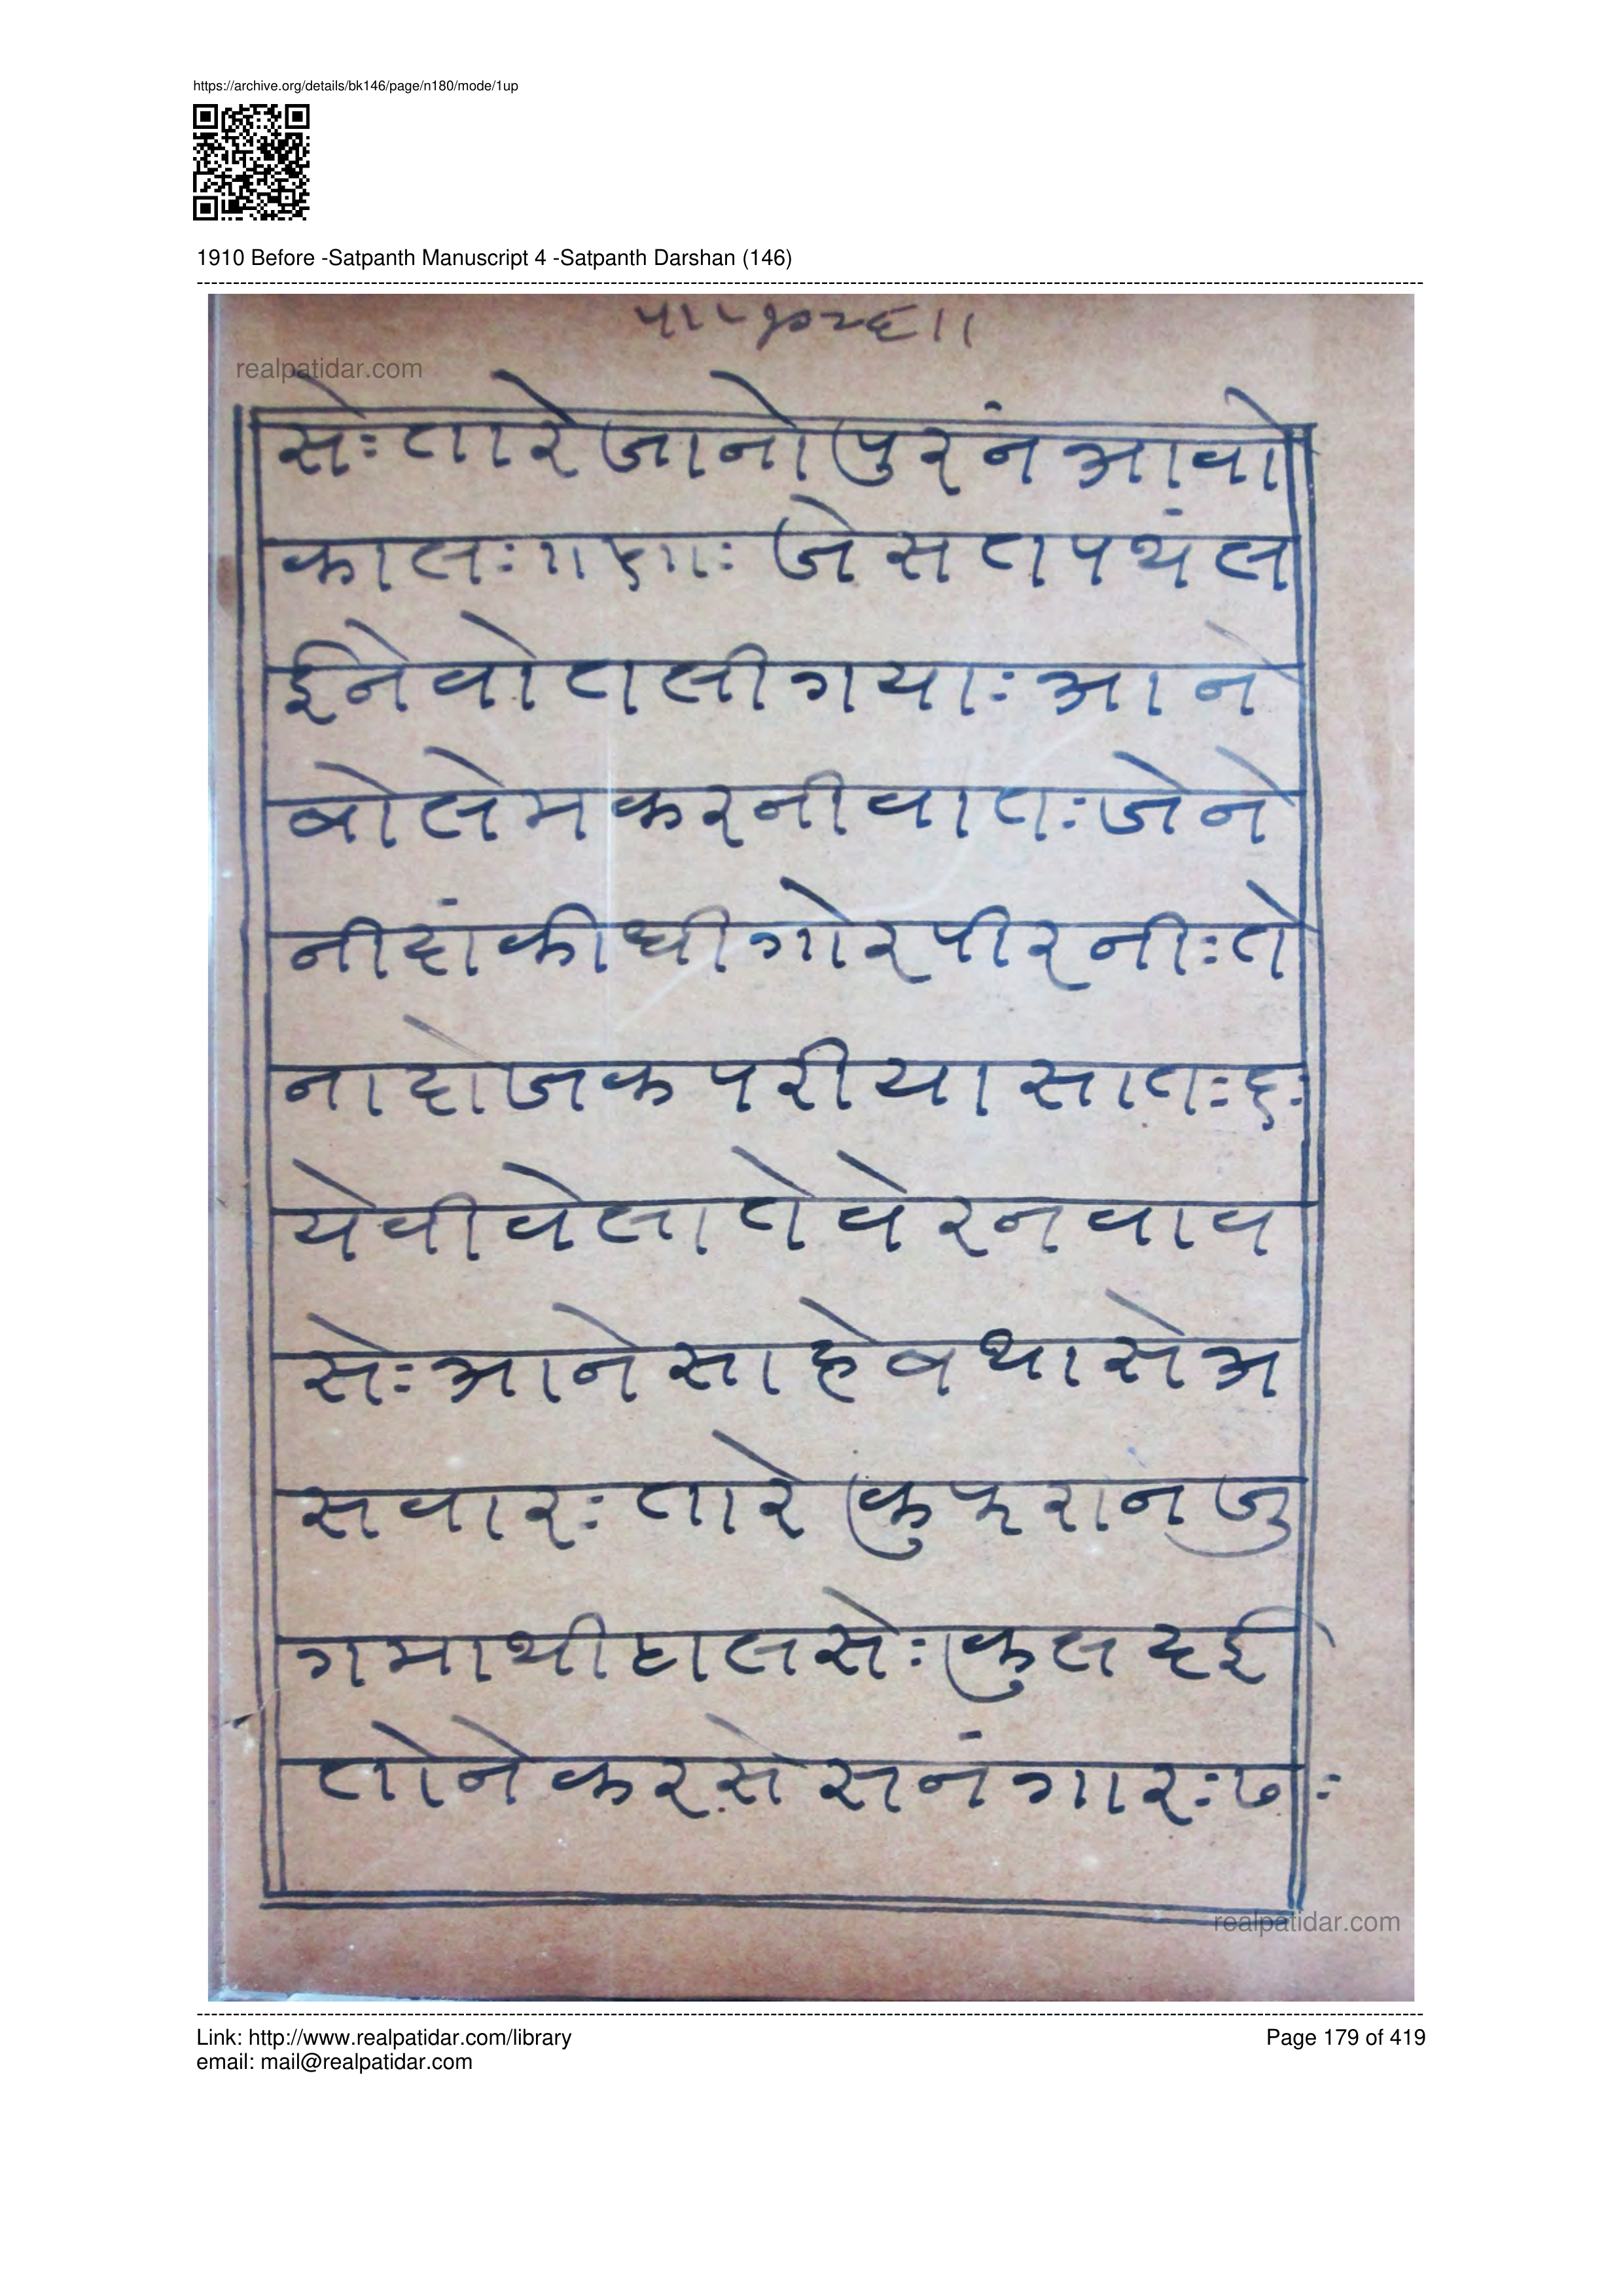 https://archive.org/details/bk146/page/n180/mode/1up
1910 Before -Satpanth Manuscript 4 -Satpanth Darshan (146)
realpatidar.com
सेः तारे जानो पुरनं आवो
कालः जे सतपथं ल
ईने वोटाली गयाः आने
बोले मकरनी वातः जेने
नीदां कीधी गोर पीरनीः ते
ना दोजक परीया सातः ६ः
येवी वेला ते वेर न वाव
सेः आने साहेब थासे अ
सवारः तारे कुफरांन जु
गमाथी टालसेः कुल दई
तोने करसे सनंगारः ७ः
realpatidar.com
Link: http://www.realpatidar.com/library
Page 179 of 419
email: mail@realpatidar.com